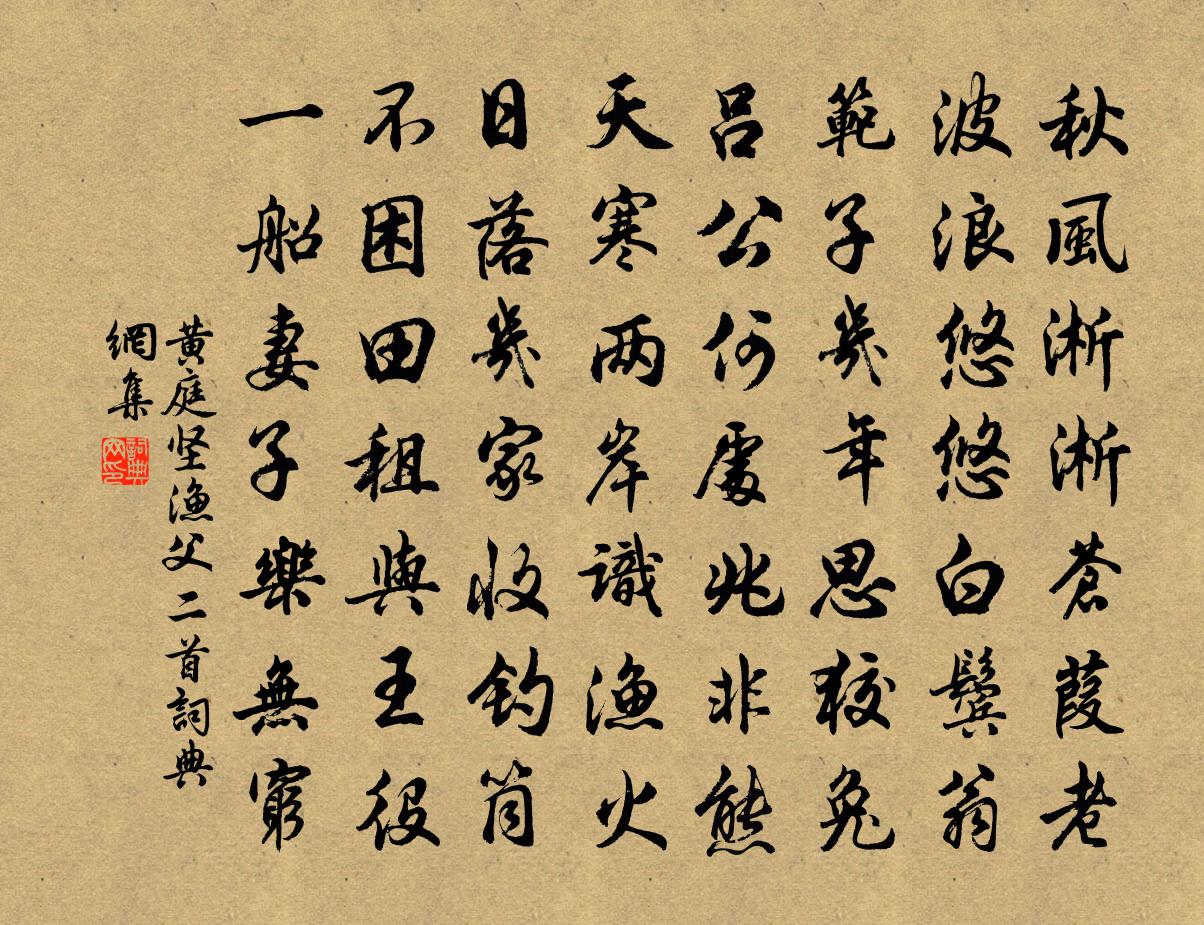 秋風淅淅蒼葭老
波浪悠悠白鬢翁
範子幾年思狡兔
呂公何處兆非熊
天寒两岸識漁火
日落幾家收釣筒
不困田租與王役
一船妻子樂無窮
黄庭坚漁父二首詞典
網集
詞典
网印